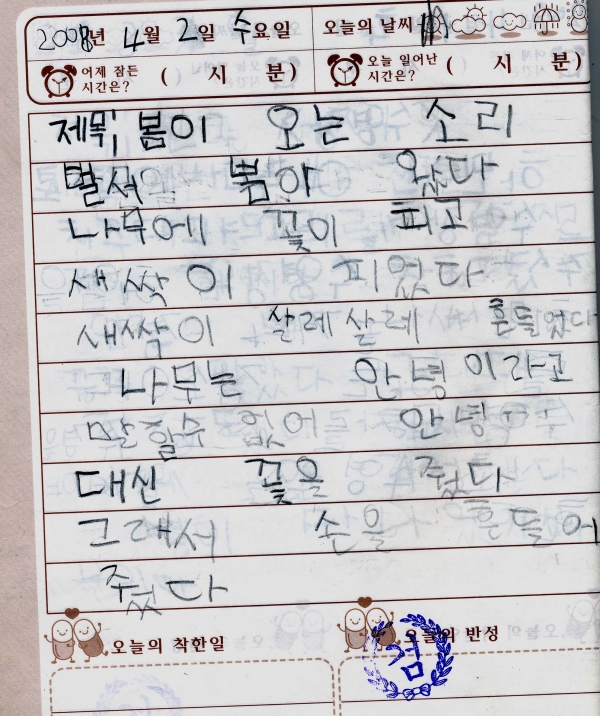 2008년 4월 2일 수요일 오늘의 날씨
어제 잠든 시간은? ( 시 분) 오늘 일어난 시간은? ( 시 분)
제목 봄이 오는 소리
벌써 봄이 왔다
나무에 꽃이 피고
새싹이 피었다
새싹이 살레살레 흔들었다
나무는 안녕이라고
말할수 없어 안녕
대신 꽃을 줬다
그래서 손을 흔들어
주었다
오늘의 착한일 오늘의 반성
검